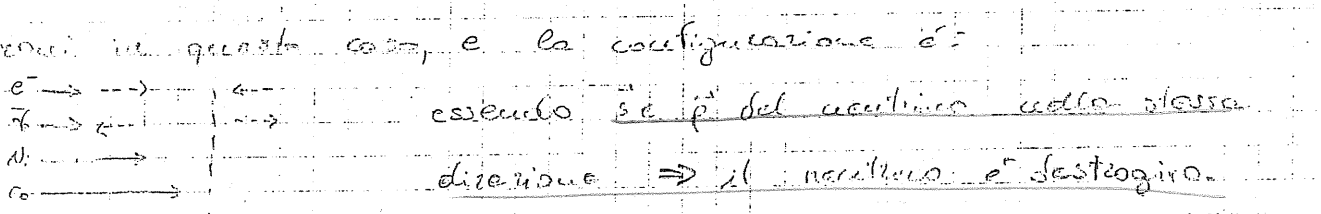 in questo caso, e la configurazione è:
e⁻ → --→ ←--
ν̄ → ←-- --→ essendo s e p del neutrino nella stessa
Ni → direzione ⇒ il neutrino è destrogiro.
Co →